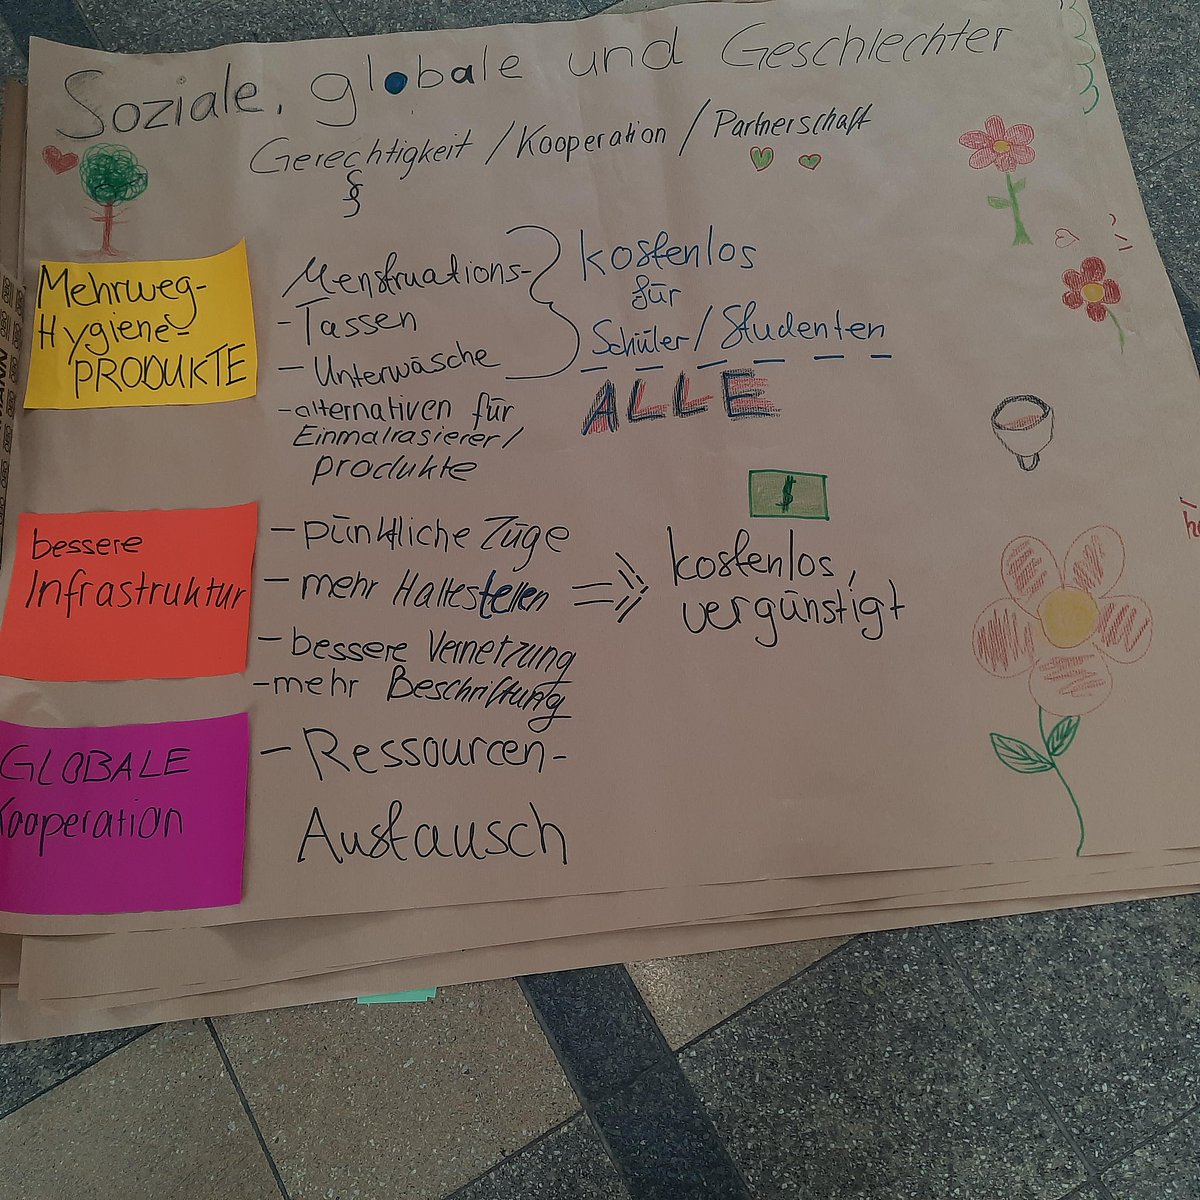 Soziale, globale und Geschlechter
Gerechtigkeit / Kooperation / Partnerschaft
§
Mehrweg-
Hygiene-
PRODUKTE
Menstruations-
- Tassen
- Unterwäsche
- alternativen für
Einmalrasierer/
produkte
kostenlos
für
Schüler/Studenten
ALLE
bessere
Infrastruktur
- pünktliche Züge
- mehr Haltestellen
- bessere Vernetzung
- mehr Beschriftung
$
kostenlos,
vergünstigt
GLOBALE
Kooperation
- Ressourcen-
Austausch